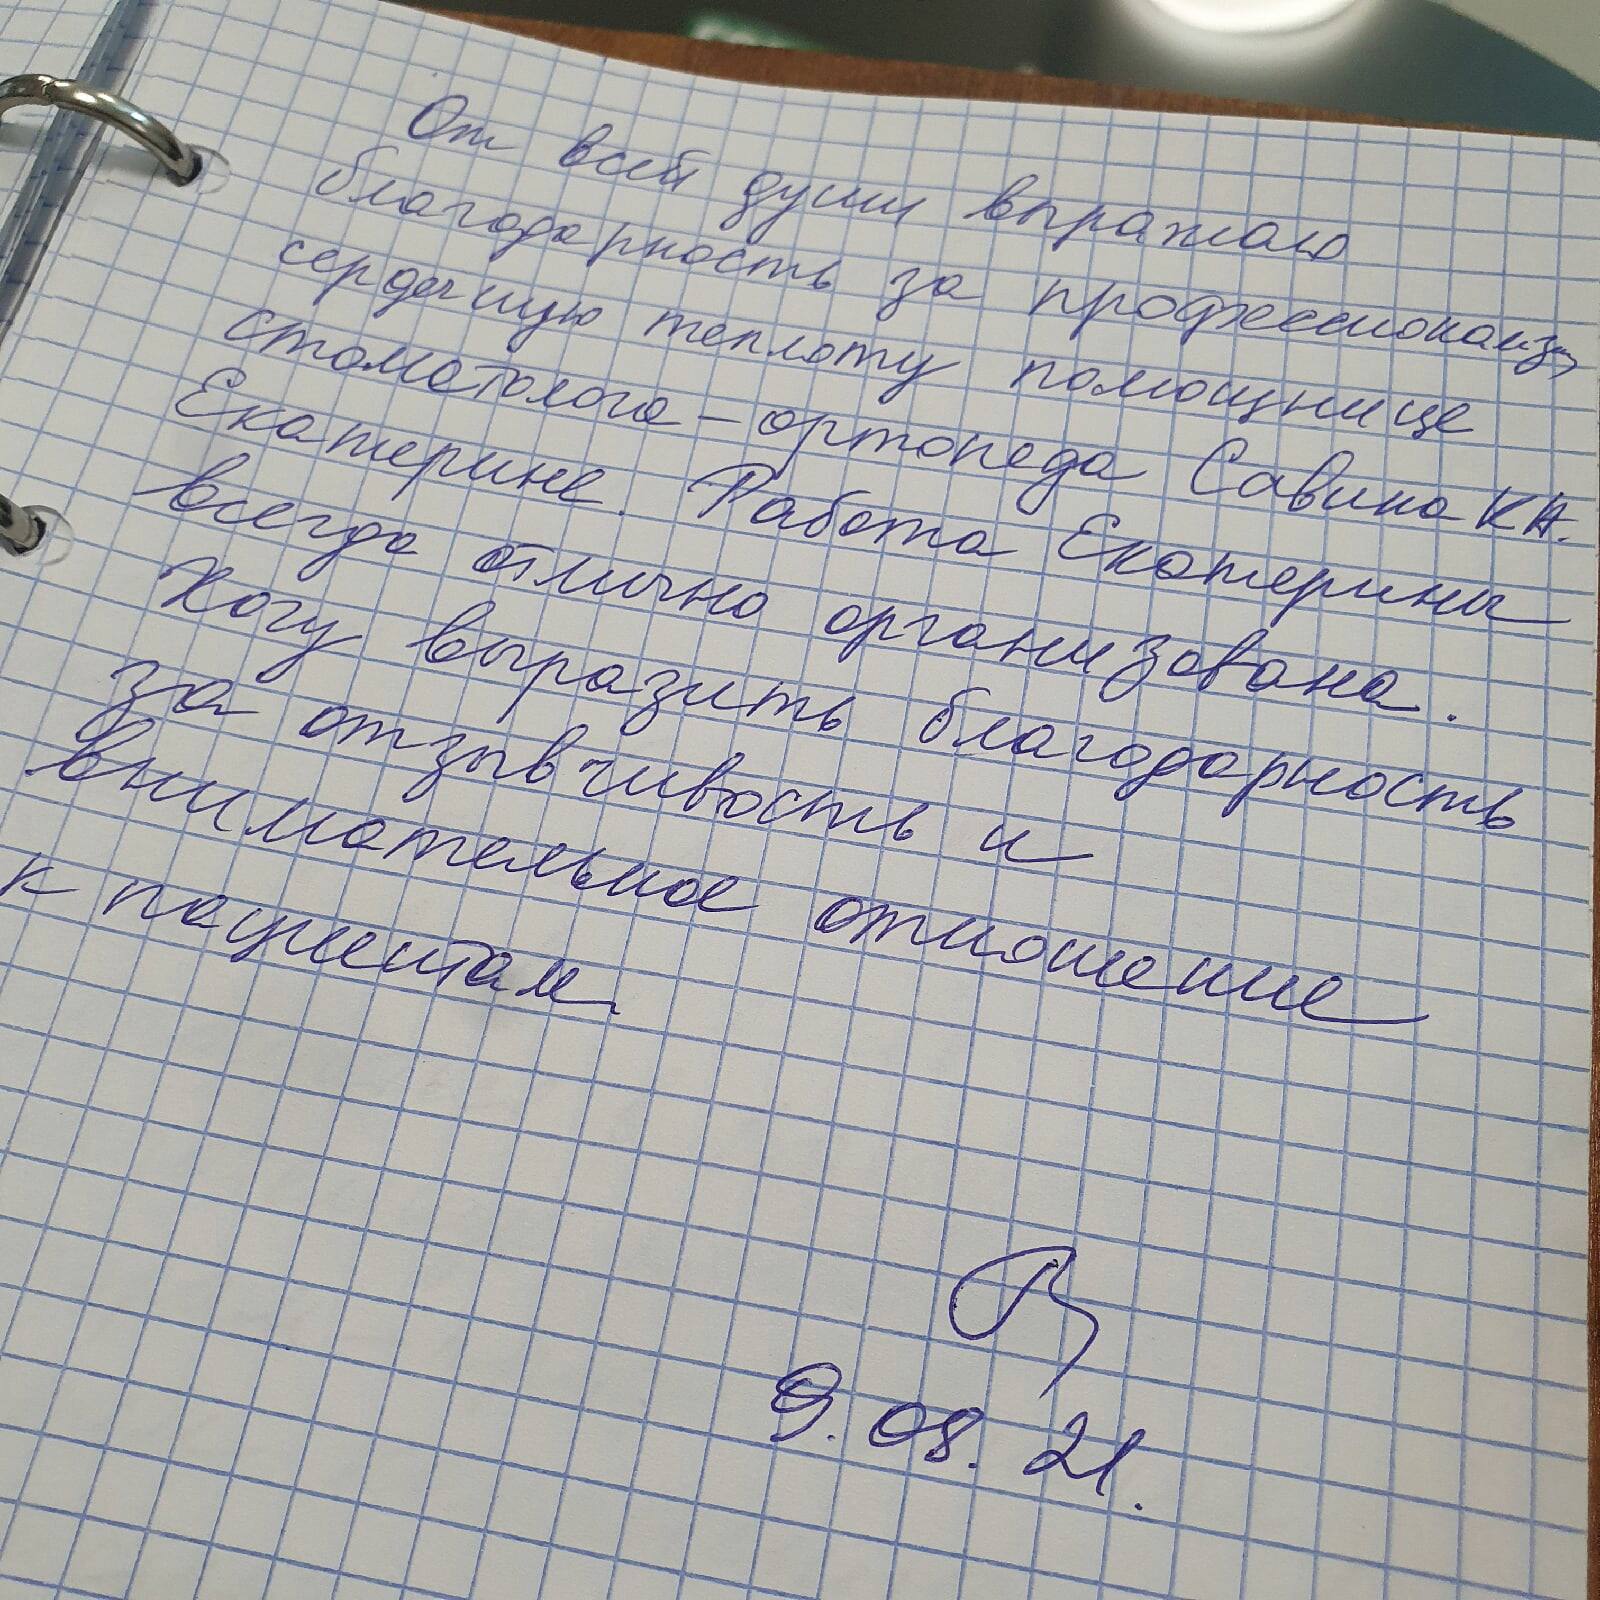 От всей души выражаю
благодарность за профессионализм,
сердечную теплоту помощнице
стоматолога-ортопеда Савина К.А.
Екатерине. Работа Екатерины
всегда отлично организована.
Хочу выразить благодарность
за отзывчивость и
внимательное отношение
к пациентам
9.08.21.